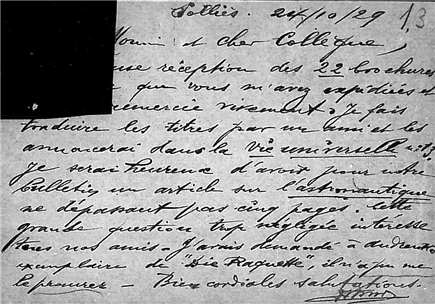 Solliès. 24/10/29 13
et cher Collègue,
réception des 22 brochures
que vous m'avez expédiées et
remercie vivement. Je fais
traduire les titres par un ami et les
annoncerai dans la vie universelle
Je serai heureux d'avoir pour notre
bulletin un article sur l'astronautique
ne dépassant pas cinq pages. Cette
grande question trop négligée intéresse
tous nos amis. J'avais demandé à
exemplaire de "Die Raquette", il n'a pu me
le procurer - Bien cordiales salutations.